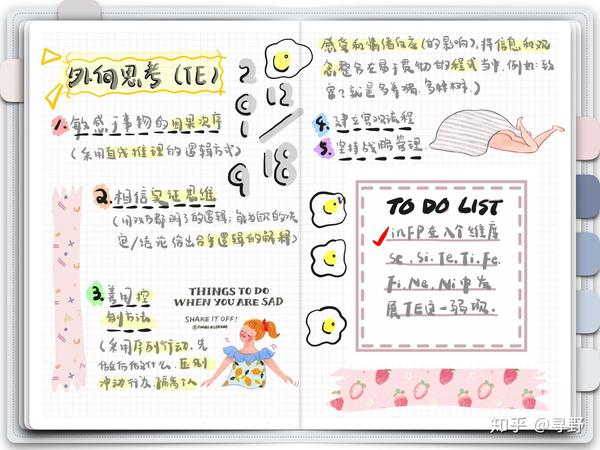 外向思考(TE)
2019
12/18
1. 敏感于事物的因果次序
(采用直线推理的逻辑方式)
2. 相信实证思维
(用双方都明了的逻辑,能为
息/结论给出合乎逻辑的解释)
3. 善用控
制方法
(采用序列行动,先
做什么,区别
冲动行为,
THINGS TO DO
WHEN YOU ARE SAD
SHAKE IT OFF!
感觉和情绪反应(的影响),将信息和观
念整合在易于成功的程式当中,例如:致
富?就是多养猪,多种树。)
4. 建立客观流程
5. 坚持战略管理
TO DO LIST
inFP在八个维度
Se. Si. Te. Ti. Fe.
Fi. Ne. Ni中发
展TE这一弱项.
知乎 @寻野